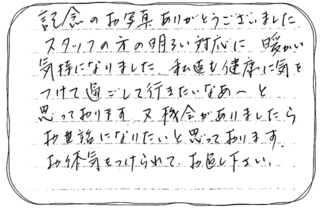 記念のお写真ありがとうございました
スタッフの方の明るい対応に 暖かい
気持になりました 私達も健康に気を
つけて過ごして行きたいなあ〜と
思っております 又機会がありましたら
お世話になりたいと思っております。
お体気をつけられて、お過し下さい。